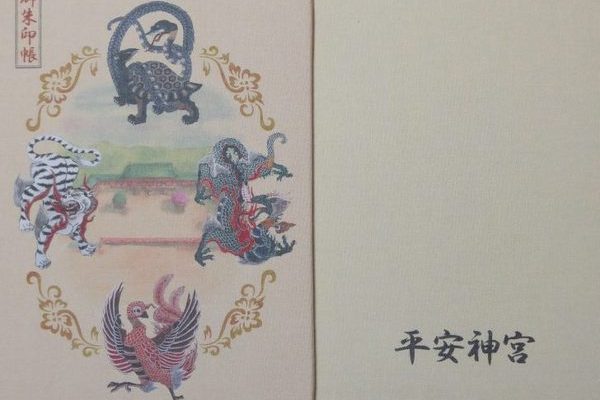 朱印帳
平安神宮